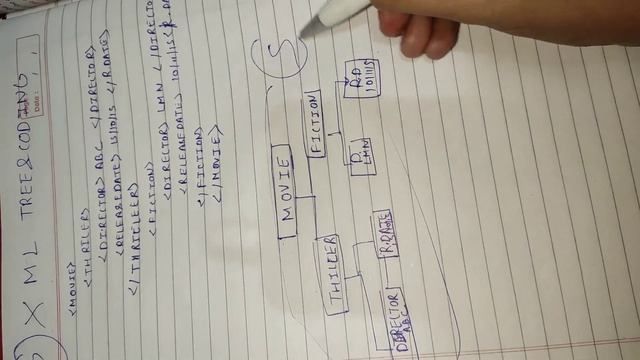 XML TREE & CODING
Date:
<MOVIE>
<THRILER>
<DIRECTOR> ABC </DIRECTOR>
<RELEASEDATE> 15/10/15 </R.DATE>
</THRIELEER>
<FICTION>
<DIRECTOR> LMN </DIRECTO
<RELEASEDATE> 10/11/15 <R.D
</FICTION>
</MOVIE>
5
MOVIE
THILLER
FICTION
DIRECTOR
ABC
R.DATE
D.
LMN
R.D
10/11/15